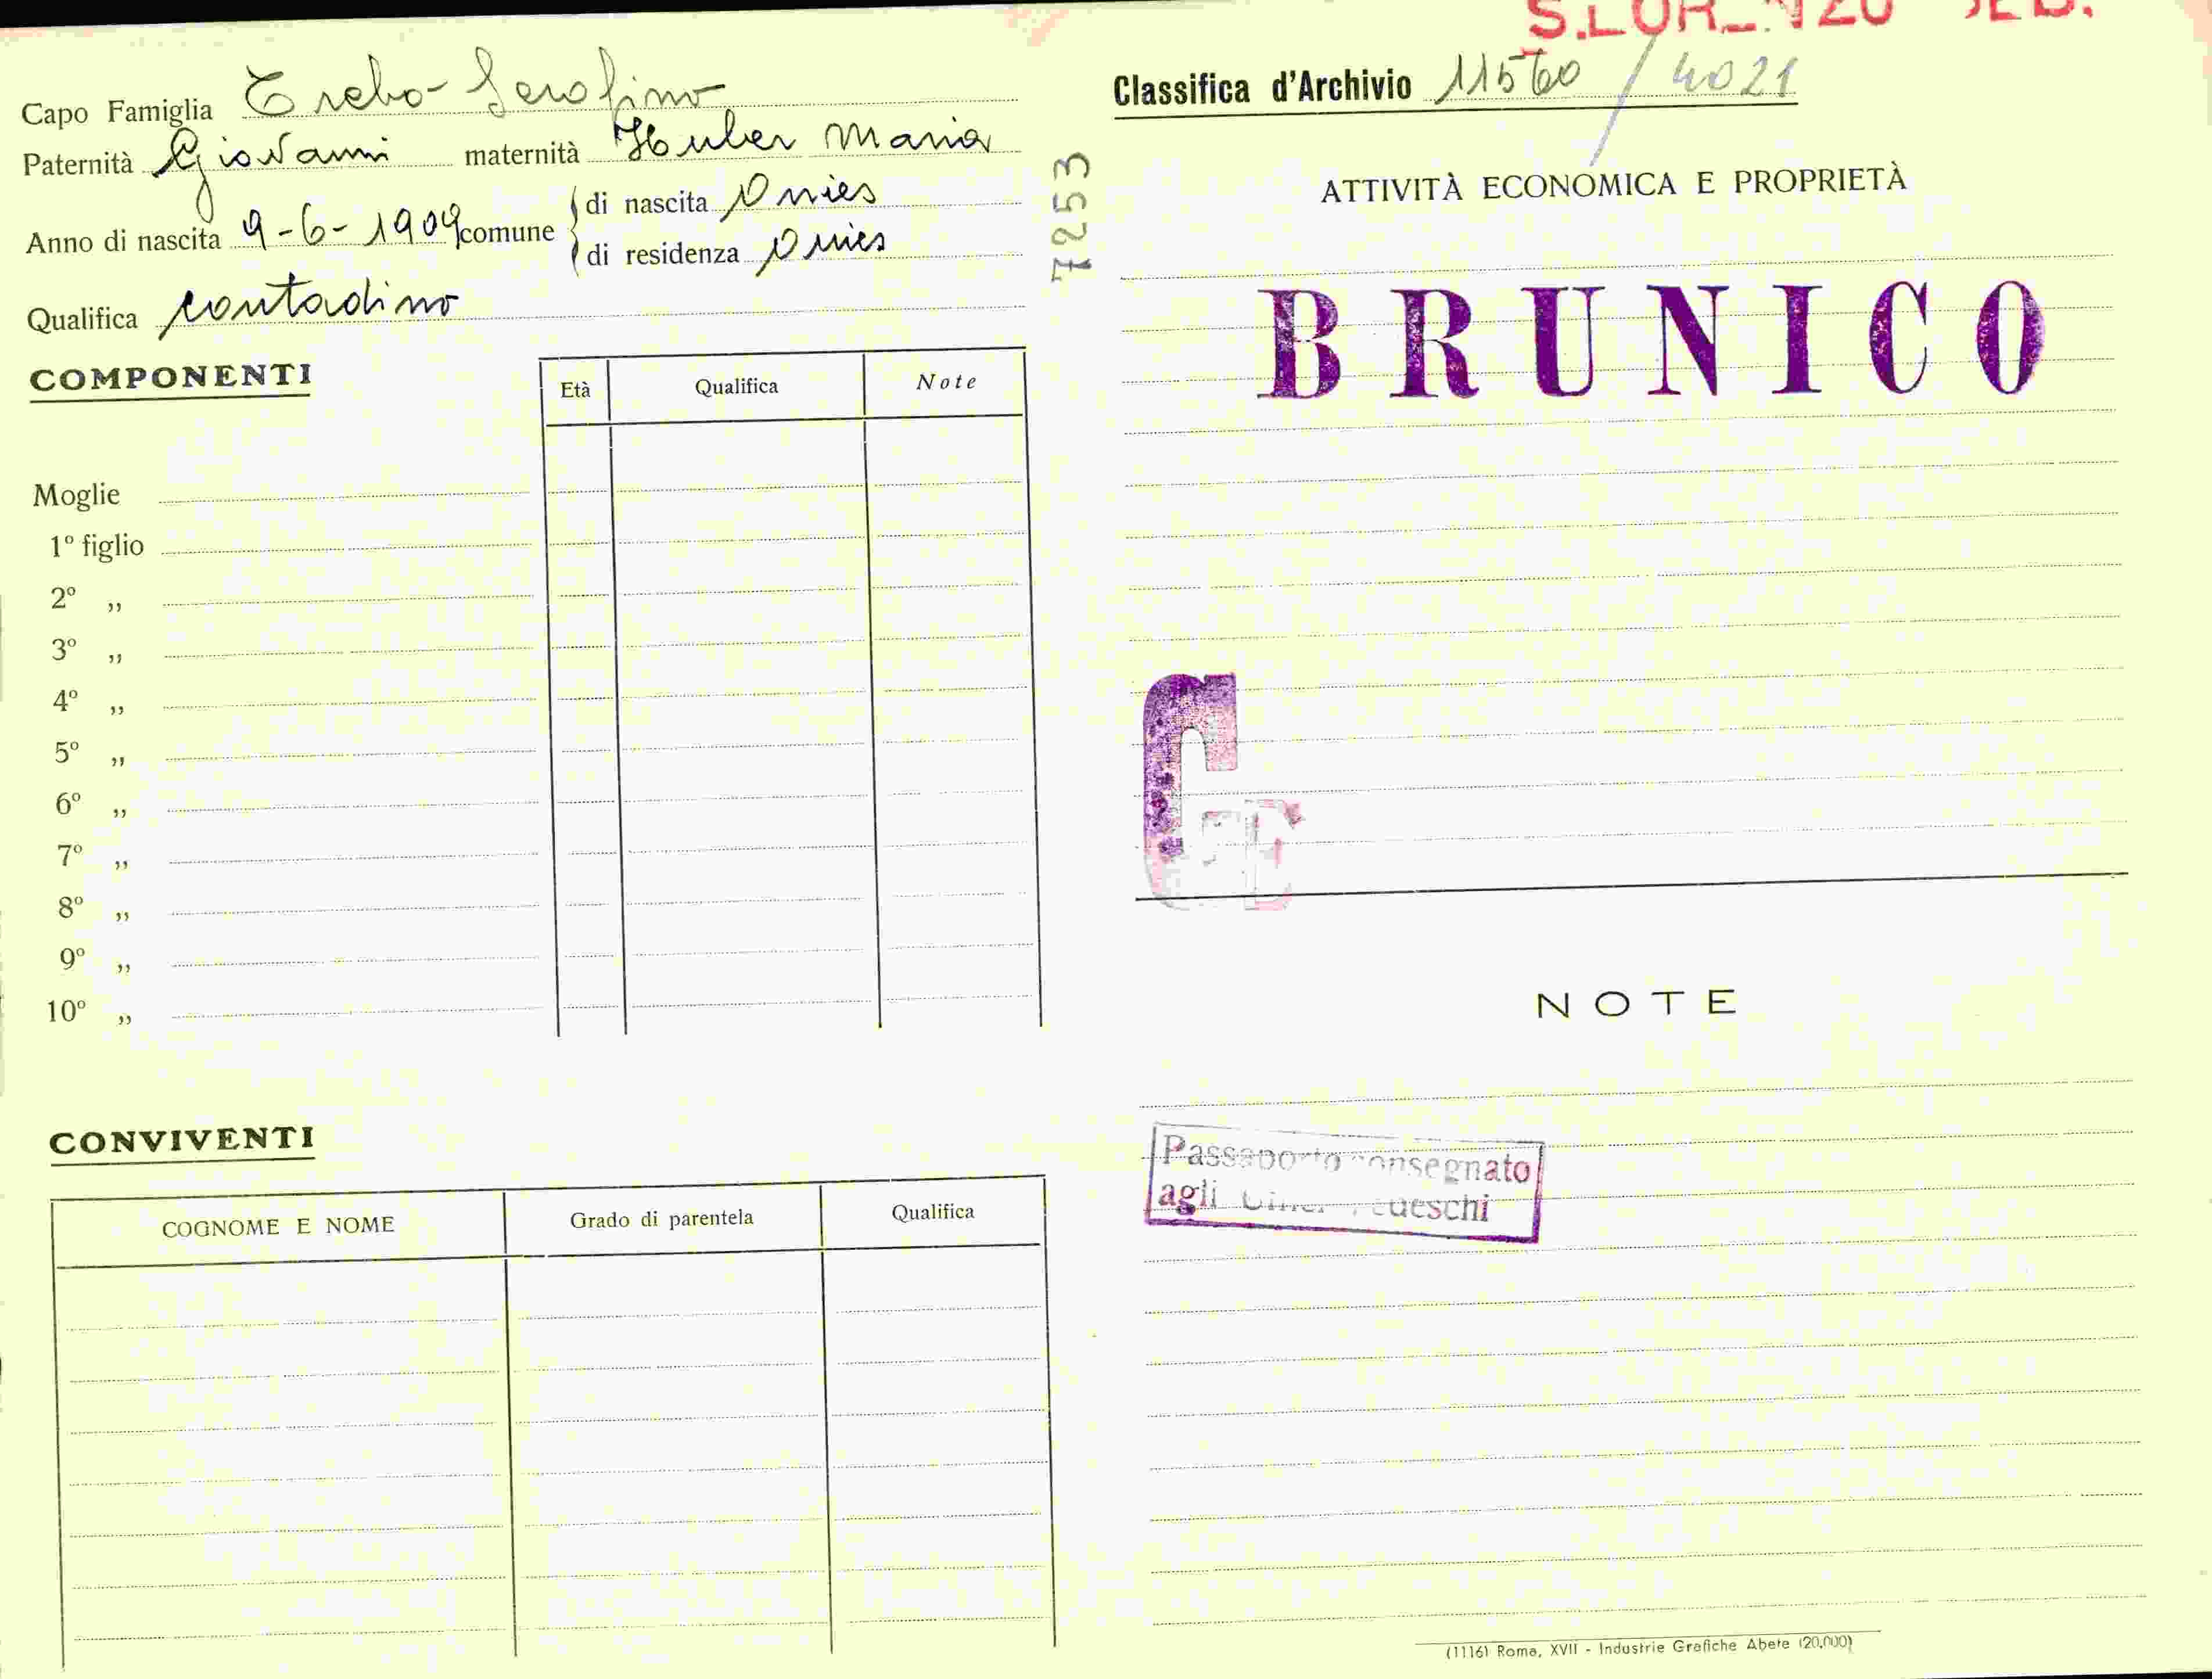 S.LORENZO
Capo Famiglia Trebo Serafino
Paternità Giovanni maternità Huber Maria
Anno di nascita 9-6-1909 comune di nascita Onies
di residenza Onies
Qualifica contadino
COMPONENTI
Età Qualifica Note
Moglie
1º figlio
2º „
3º „
4º „
5º „
6º „
7º „
8º „
9º „
10º „
CONVIVENTI
COGNOME E NOME Grado di parentela Qualifica
7253
Classifica d'Archivio 11560 / 4021
ATTIVITÀ ECONOMICA E PROPRIETÀ
BRUNICO
NOTE
Passaporto consegnato
agli Tedeschi
(1116) Roma, XVII - Industrie Grafiche Abete (20.000)